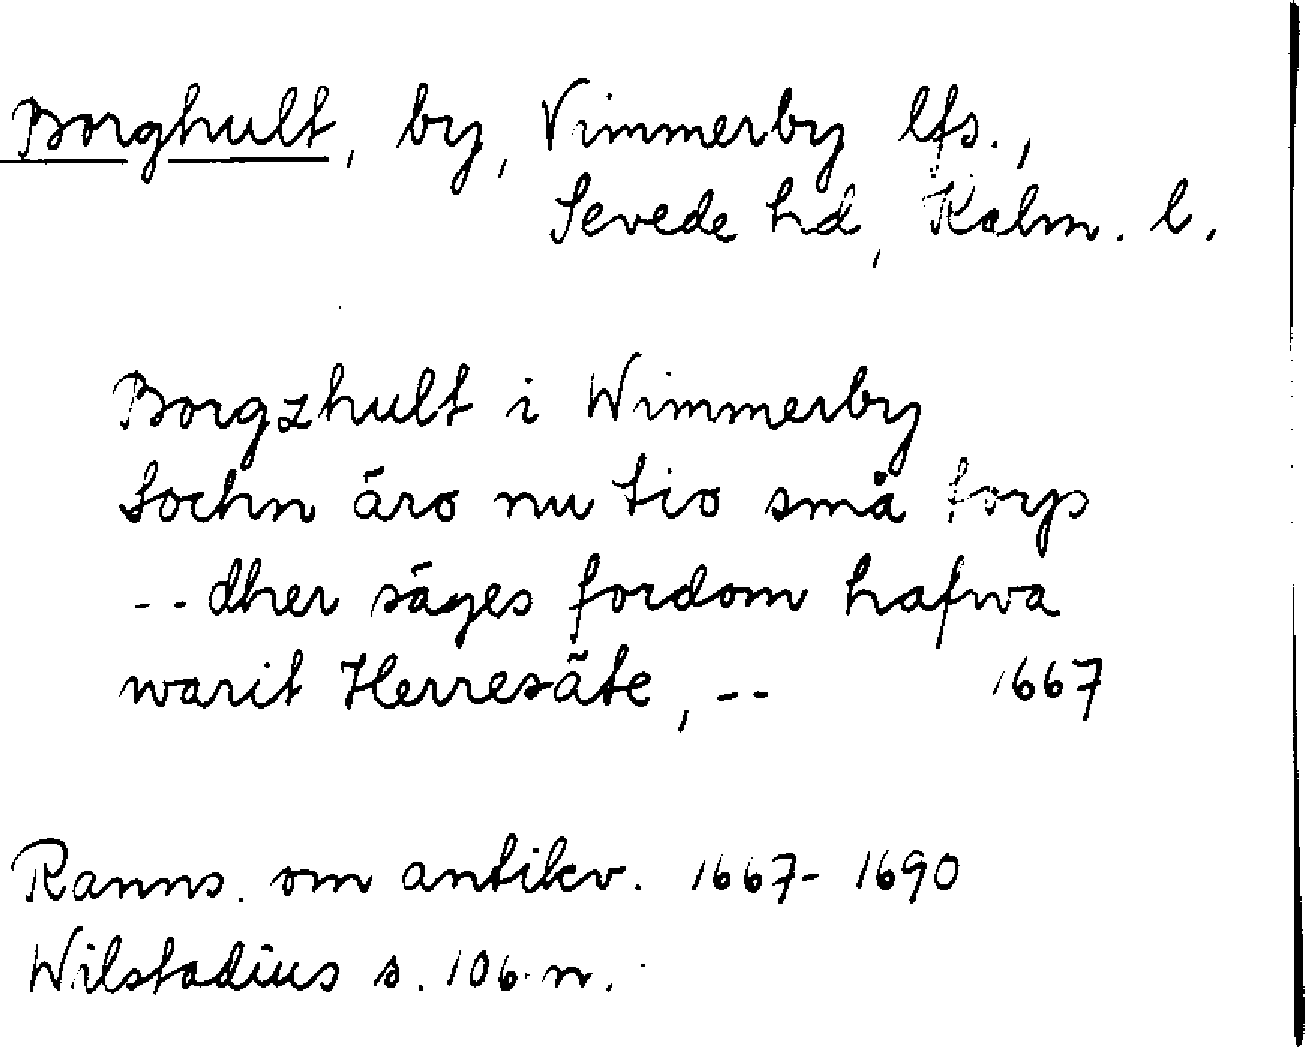 Borghult, by, Vimmerby lfs.,
Sevede hd, Kalm. l.
Borgzhult i Wimmerby
Sochn äro nu tio små torp
-- dher säges fordom hafwa
warit Herresäte, -- 1667
Ranns. om antikv. 1667-1690
Wilstadius s. 106 n.